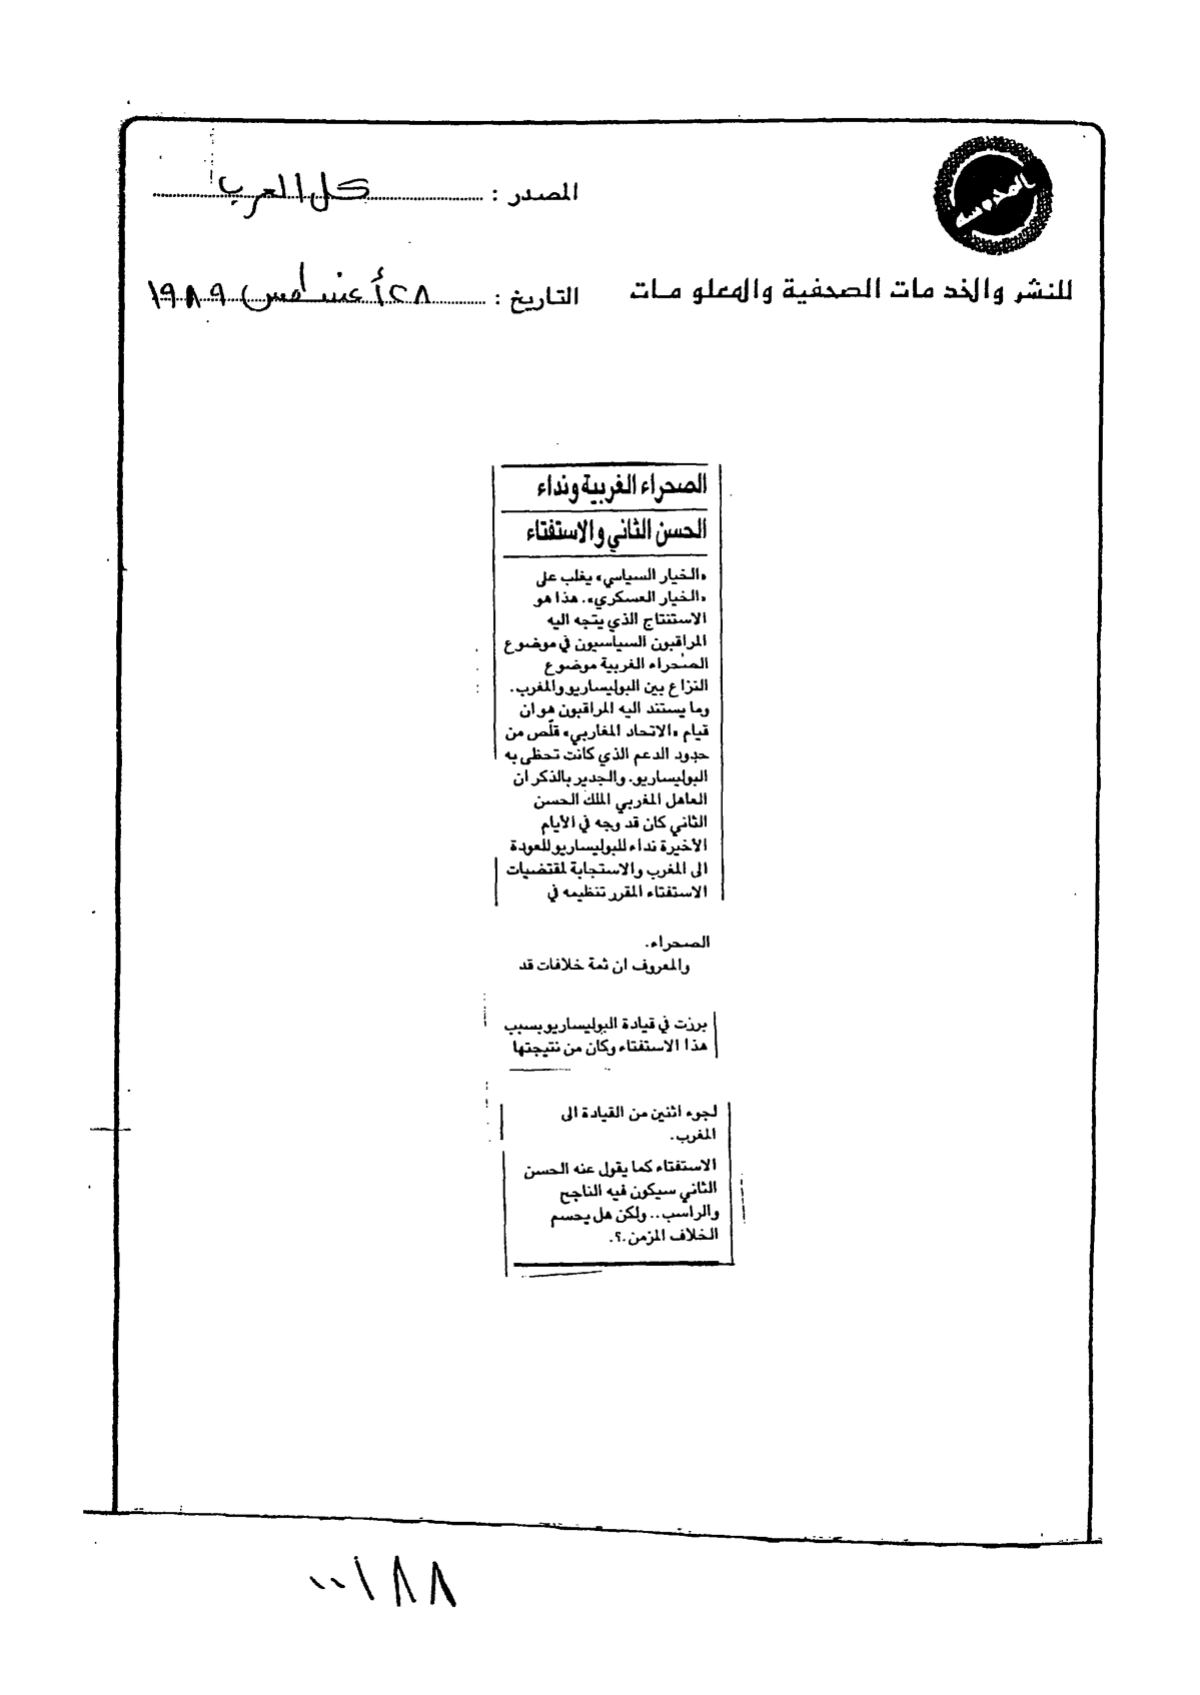 المصدر : كل العرب
للنشر والخدمات الصحفية والمعلومات
التاريخ : ٢٨ أغسطس ١٩٨٩
الصحراء الغربية ونداء
الحسن الثاني والاستفتاء
«الخيار السياسي» يغلب على
«الخيار العسكري». هذا هو
الاستنتاج الذي يتجه اليه
المراقبون السياسيون في موضوع
الصحراء الغربية موضوع
النزاع بين البوليساريو والمغرب.
وما يستند اليه المراقبون هو ان
قيام «الاتحاد المغاربي» قلّص من
حدود الدعم الذي كانت تحظى به
البوليساريو. والجدير بالذكر ان
العاهل المغربي الملك الحسن
الثاني كان قد وجه في الأيام
الأخيرة نداء للبوليساريو للعودة
الى المغرب والاستجابة لمقتضيات
الاستفتاء المقرر تنظيمه في
الصحراء.
والمعروف ان ثمة خلافات قد
برزت في قيادة البوليساريو بسبب
هذا الاستفتاء وكان من نتيجتها
لجوء اثنين من القيادة الى
المغرب.
الاستفتاء كما يقول عنه الحسن
الثاني سيكون فيه الناجح
والراسب.. ولكن هل يحسم
الخلاف المزمن.؟.
٠٠١٨٨